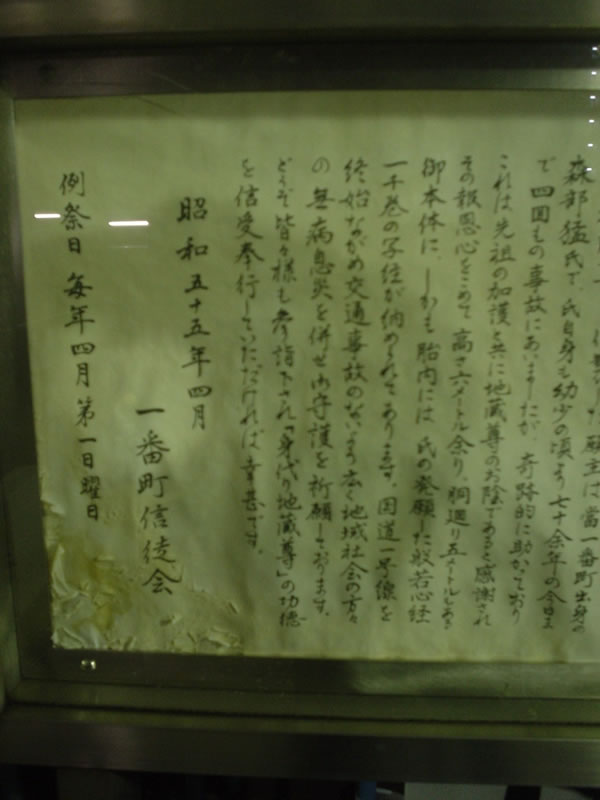 願主は當一番町出身の
森部猛氏で、氏自身も幼少の頃より七十余年の今日ま
で四回もの事故にあいましたが、奇跡的に助かっており
これは先祖の加護と共に地蔵尊のお陰であると感謝され
その報恩心をこめて高さ六メートル余り、胴廻り五メートルもある
御本体に、しかも胎内には氏の発願した般若心経
一千巻の写経が納められてあります。国道一号線を
終始ながめ交通事故のないよう広く地域社会の方々
の無病息災を併せ御守護を祈願しております。
どうぞ皆々様も参詣下され「身代り地蔵尊」の功徳
を信受奉行していただければ幸甚です。
昭和五十五年四月
一番町信徒会
例祭日 毎年四月第一日曜日